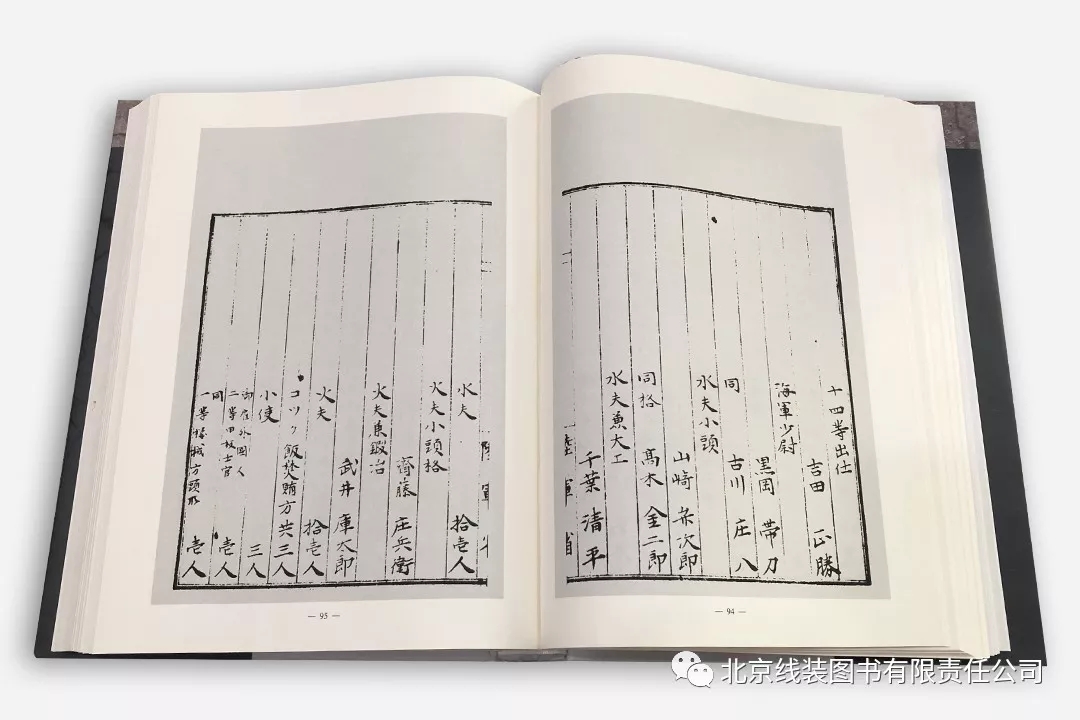 十四等出仕
吉田 正勝
海軍少尉
黒岡 帯刀
同
古川 庄八
水夫小頭
山崎 粂次郎
同格 髙木 金二郎
水夫兼大工
千葉 清平
陸軍省
— 94 —
水夫 拾壱人
火夫小頭格
齋藤 庄兵衛
火夫兼鍛冶
武井 庫太郎
火夫 拾壱人
コック飯焚賄方共三人
小使 三人
雇外國人
二等甲板士官 壱人
同
一等機械方頭取 壱人
— 95 —
北京线装图书有限责任公司